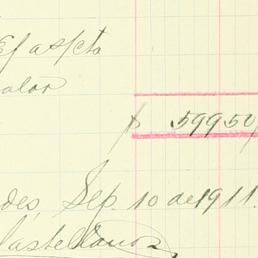 valor
$ 599.50
des, Sep. 10 de 1911.
Castellanos